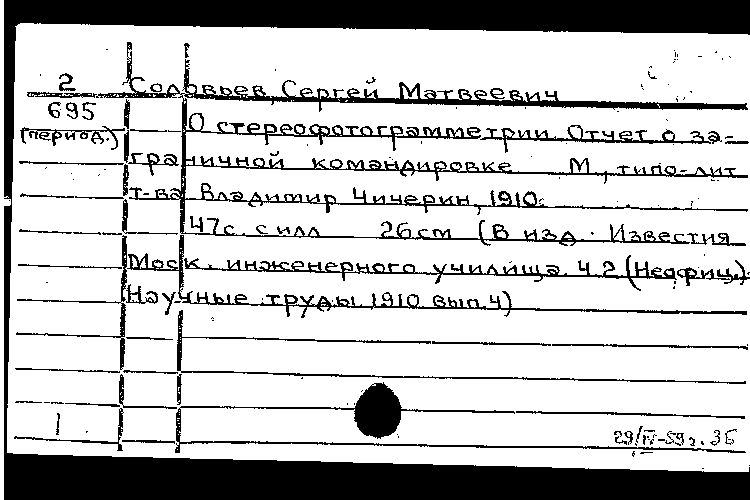 2 Соловьев, Сергей Матвеевич
695
(период.) О стереофотограмметрии. Отчет о за-
граничной командировке М., типо-лит
т-ва Владимир Чичерин, 1910.
47с. с илл 26см (В изд. Известия
Моск. инженерного училища. Ч 2 (Неофиц.).
Научные труды 1910 вып.4)
1 29/IV-59г. ЗБ